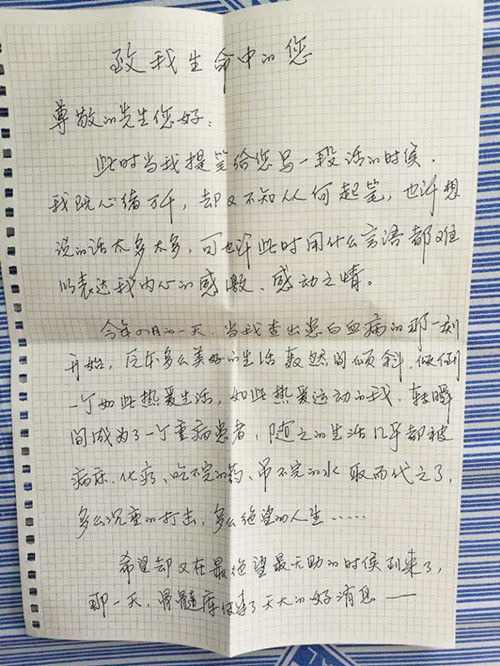 致我生命中的您
尊敬的先生您好：
此时当我提笔给您写一段话的时候，
我既心绪万千，却又不知从何起笔，也许想
说的话太多太多，可也许此时用什么言语都难
以表达我内心的感激、感动之情。
今年4月的一天，当我查出患白血病的那一刻
开始，原本多么美好的生活轰然间倾斜、倾倒
一个如此热爱生活，如此热爱运动的我，转瞬
间成为了一个重病患者，随之的生活几乎都被
病床、化疗、吃不完的药、吊不完的水取而代之了，
多么沉重的打击，多么绝望的人生……
希望却又在最绝望最无助的时候到来了，
那一天，骨髓库传来了天大的好消息——